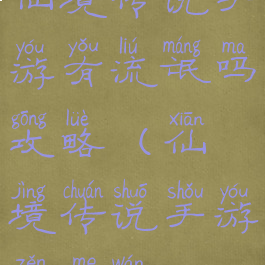 仙境传说手
yóu yǒu liú máng ma
游有流氓吗
gōng lüè xiān
攻略(仙
jìng chuán shuō shǒu yóu
境传说手游
zěn me wán